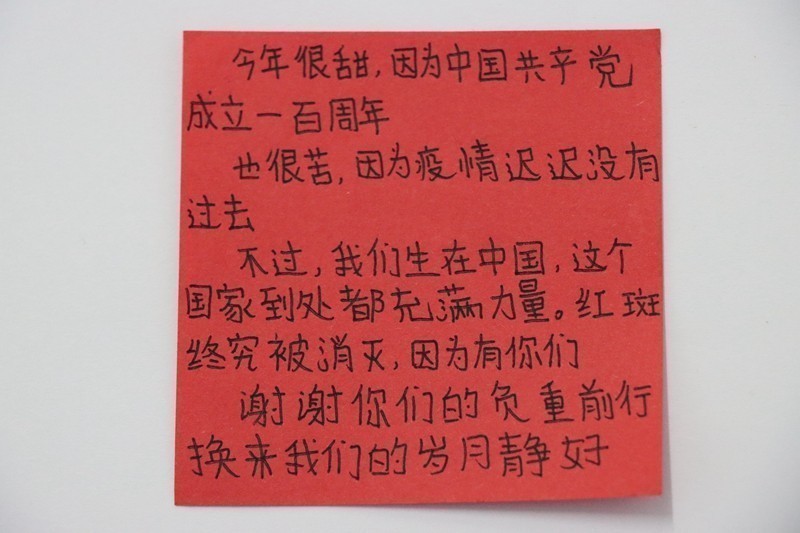 今年很甜,因为中国共产党
成立一百周年
也很苦,因为疫情迟迟没有
过去
不过,我们生在中国,这个
国家到处都充满力量。红斑
终究被消灭,因为有你们
谢谢你们的负重前行
换来我们的岁月静好